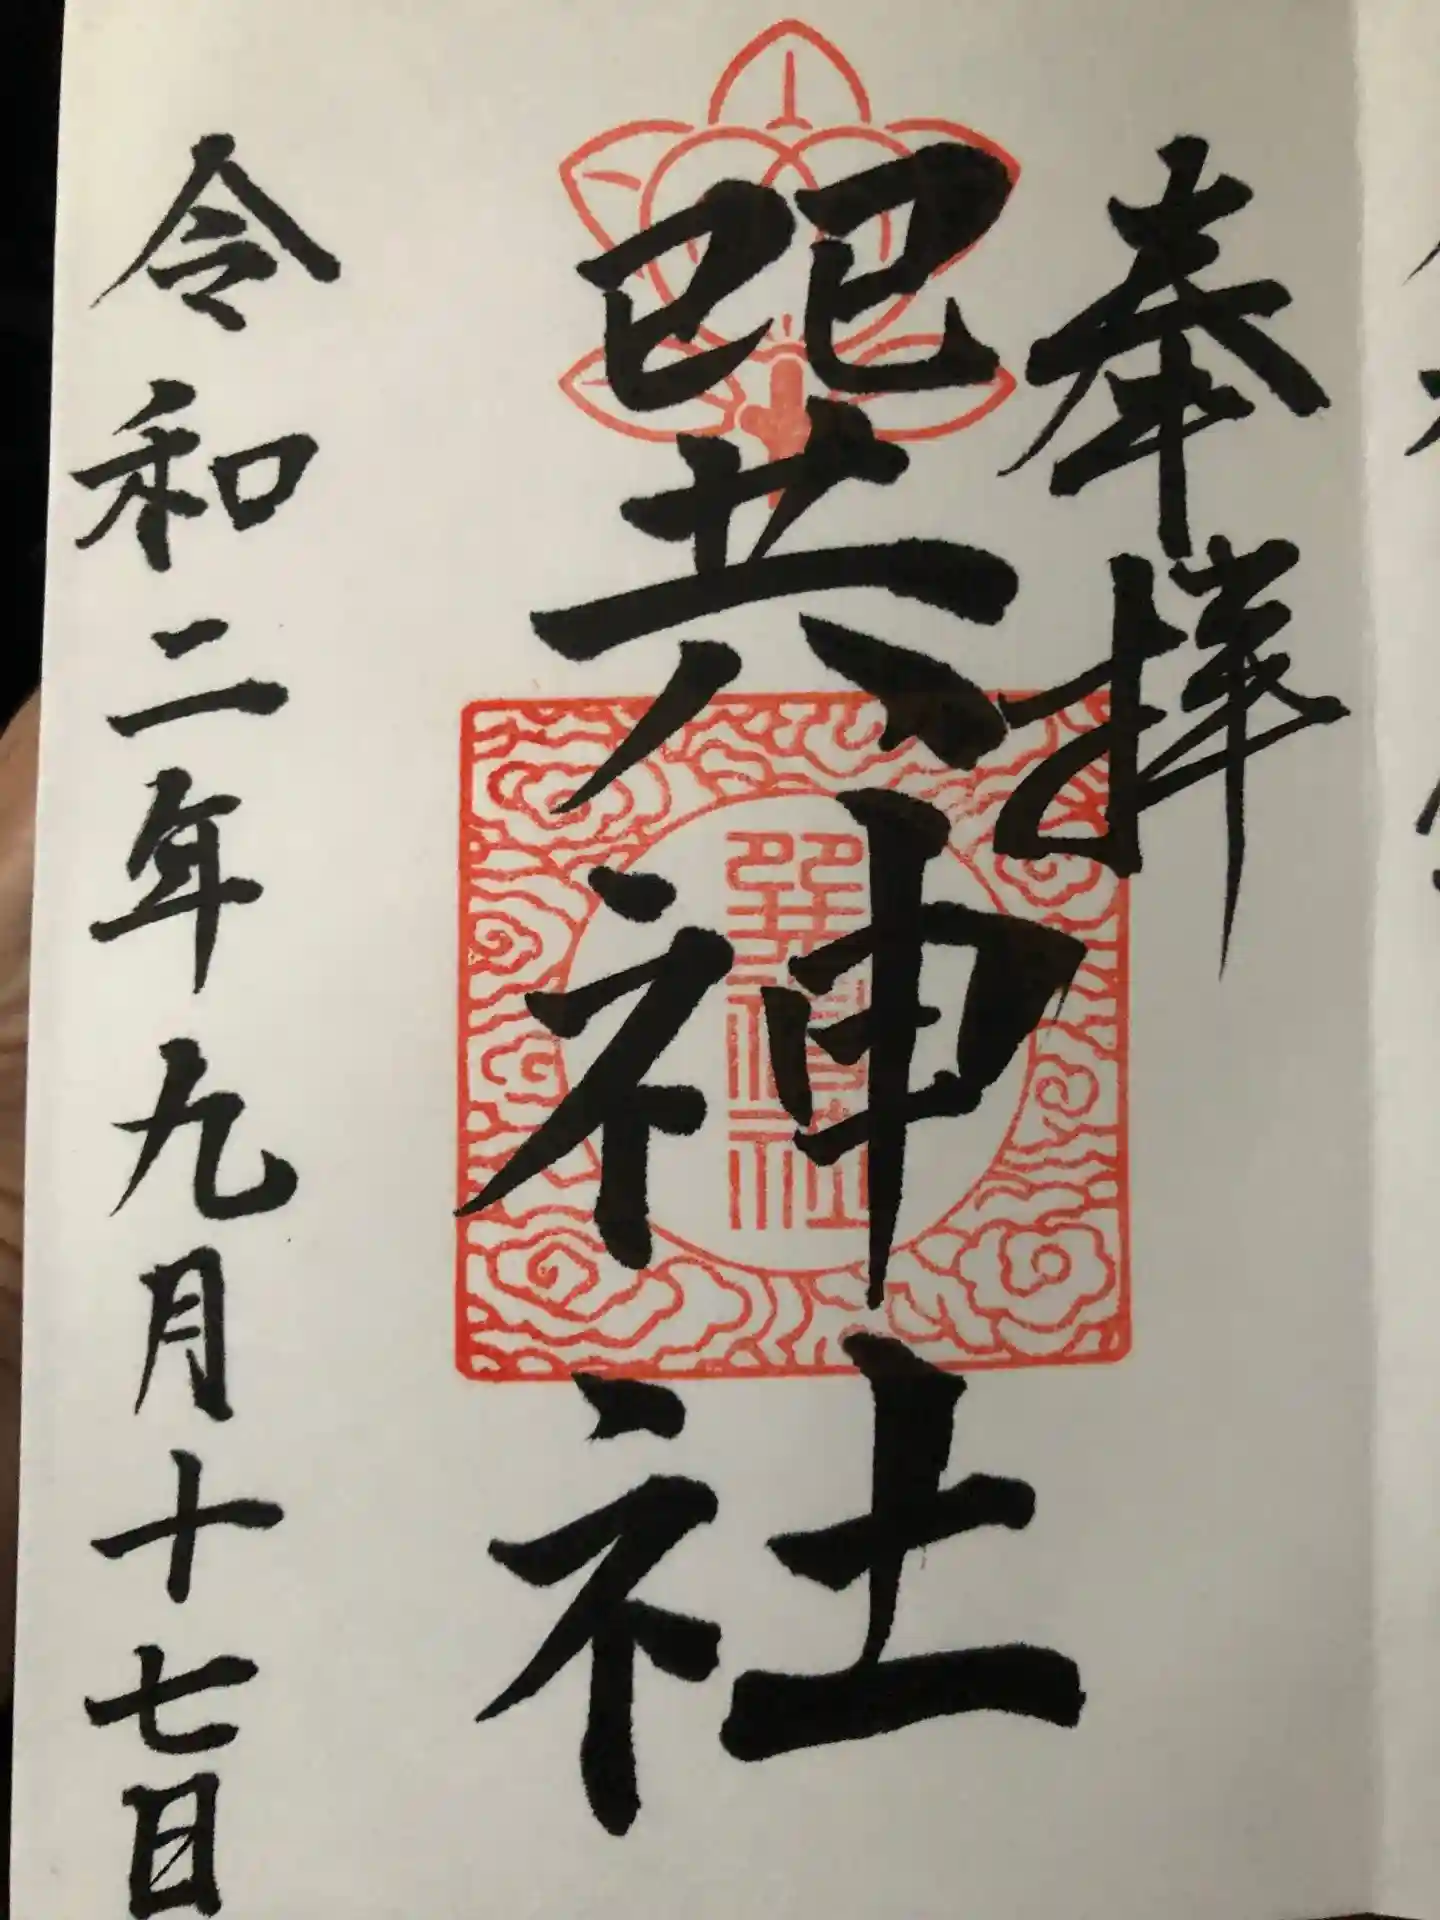 奉拝
巽神社
巽神社
令和二年九月十七日